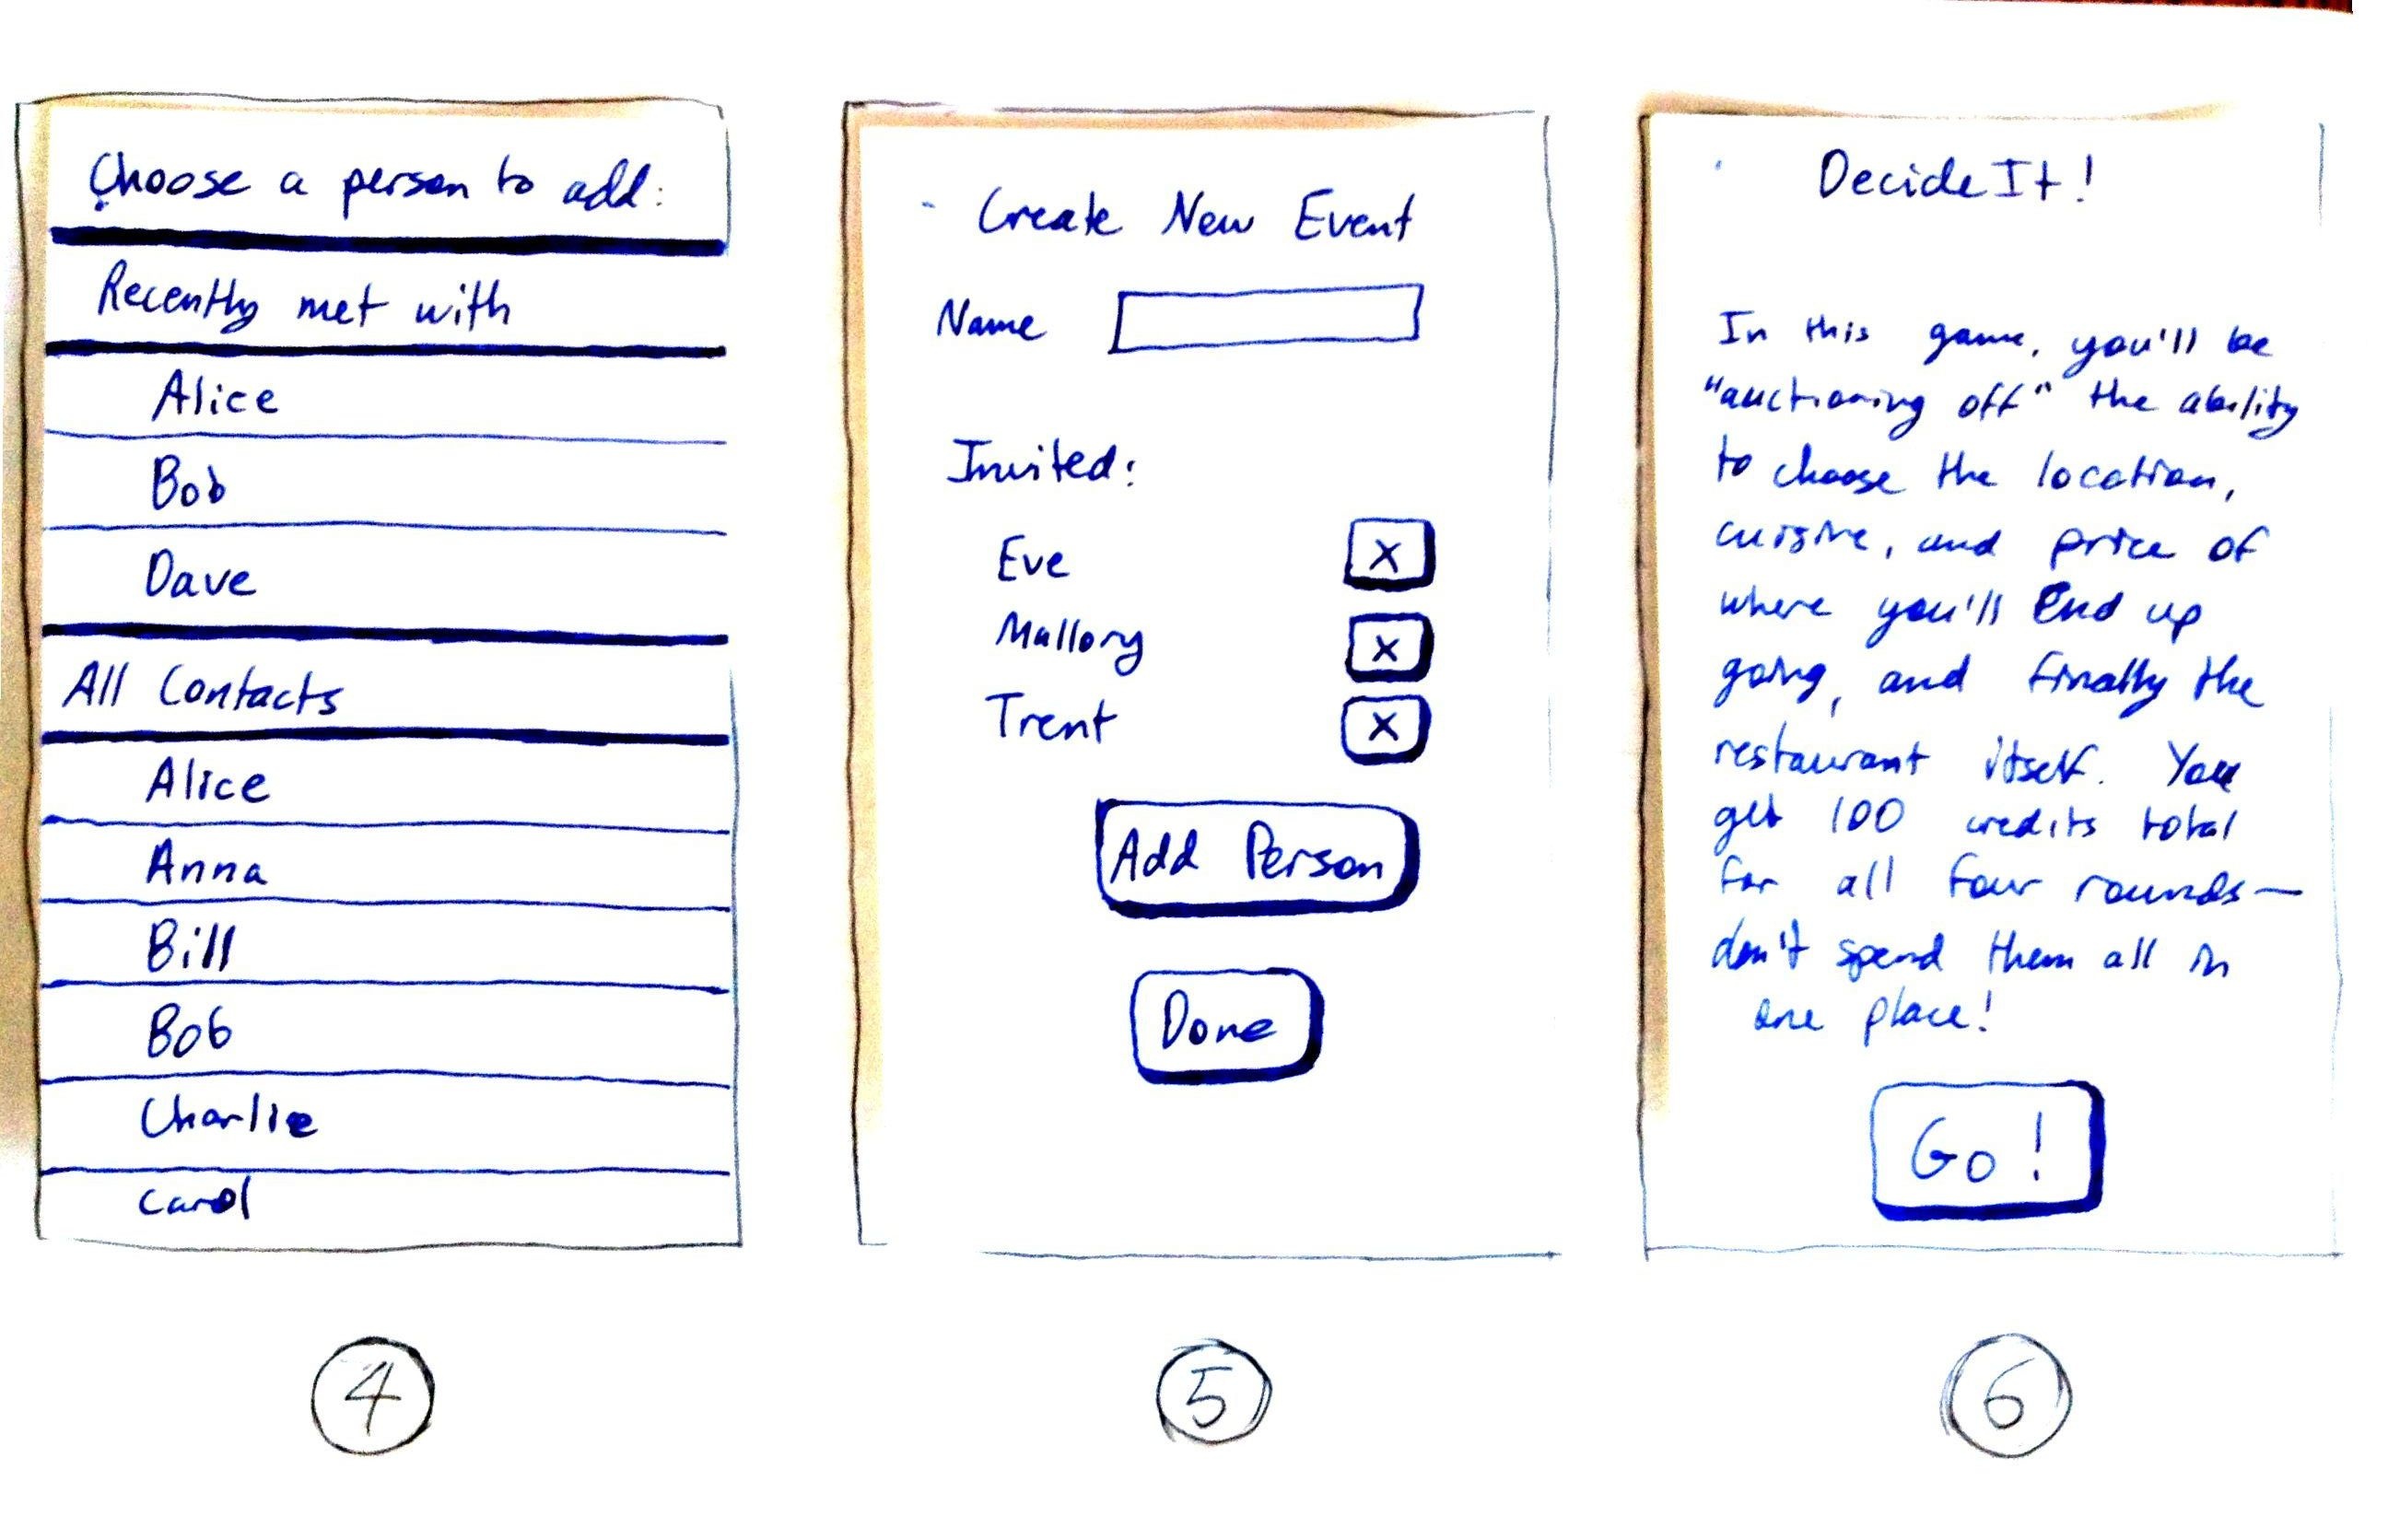 Choose a person to add:
Recently met with
Alice
Bob
Dave
All Contacts
Alice
Anna
Bill
Bob
Charlie
Carol
4
Create New Event
Name
Invited:
Eve X
Mallory X
Trent X
Add Person
Done
5
DecideIt!
In this game, you'll be
"auctioning off" the ability
to choose the location,
cuisine, and price of
where you'll end up
going, and finally the
restaurant itself. You
get 100 credits total
for all four rounds—
don't spend them all in
one place!
Go!
6